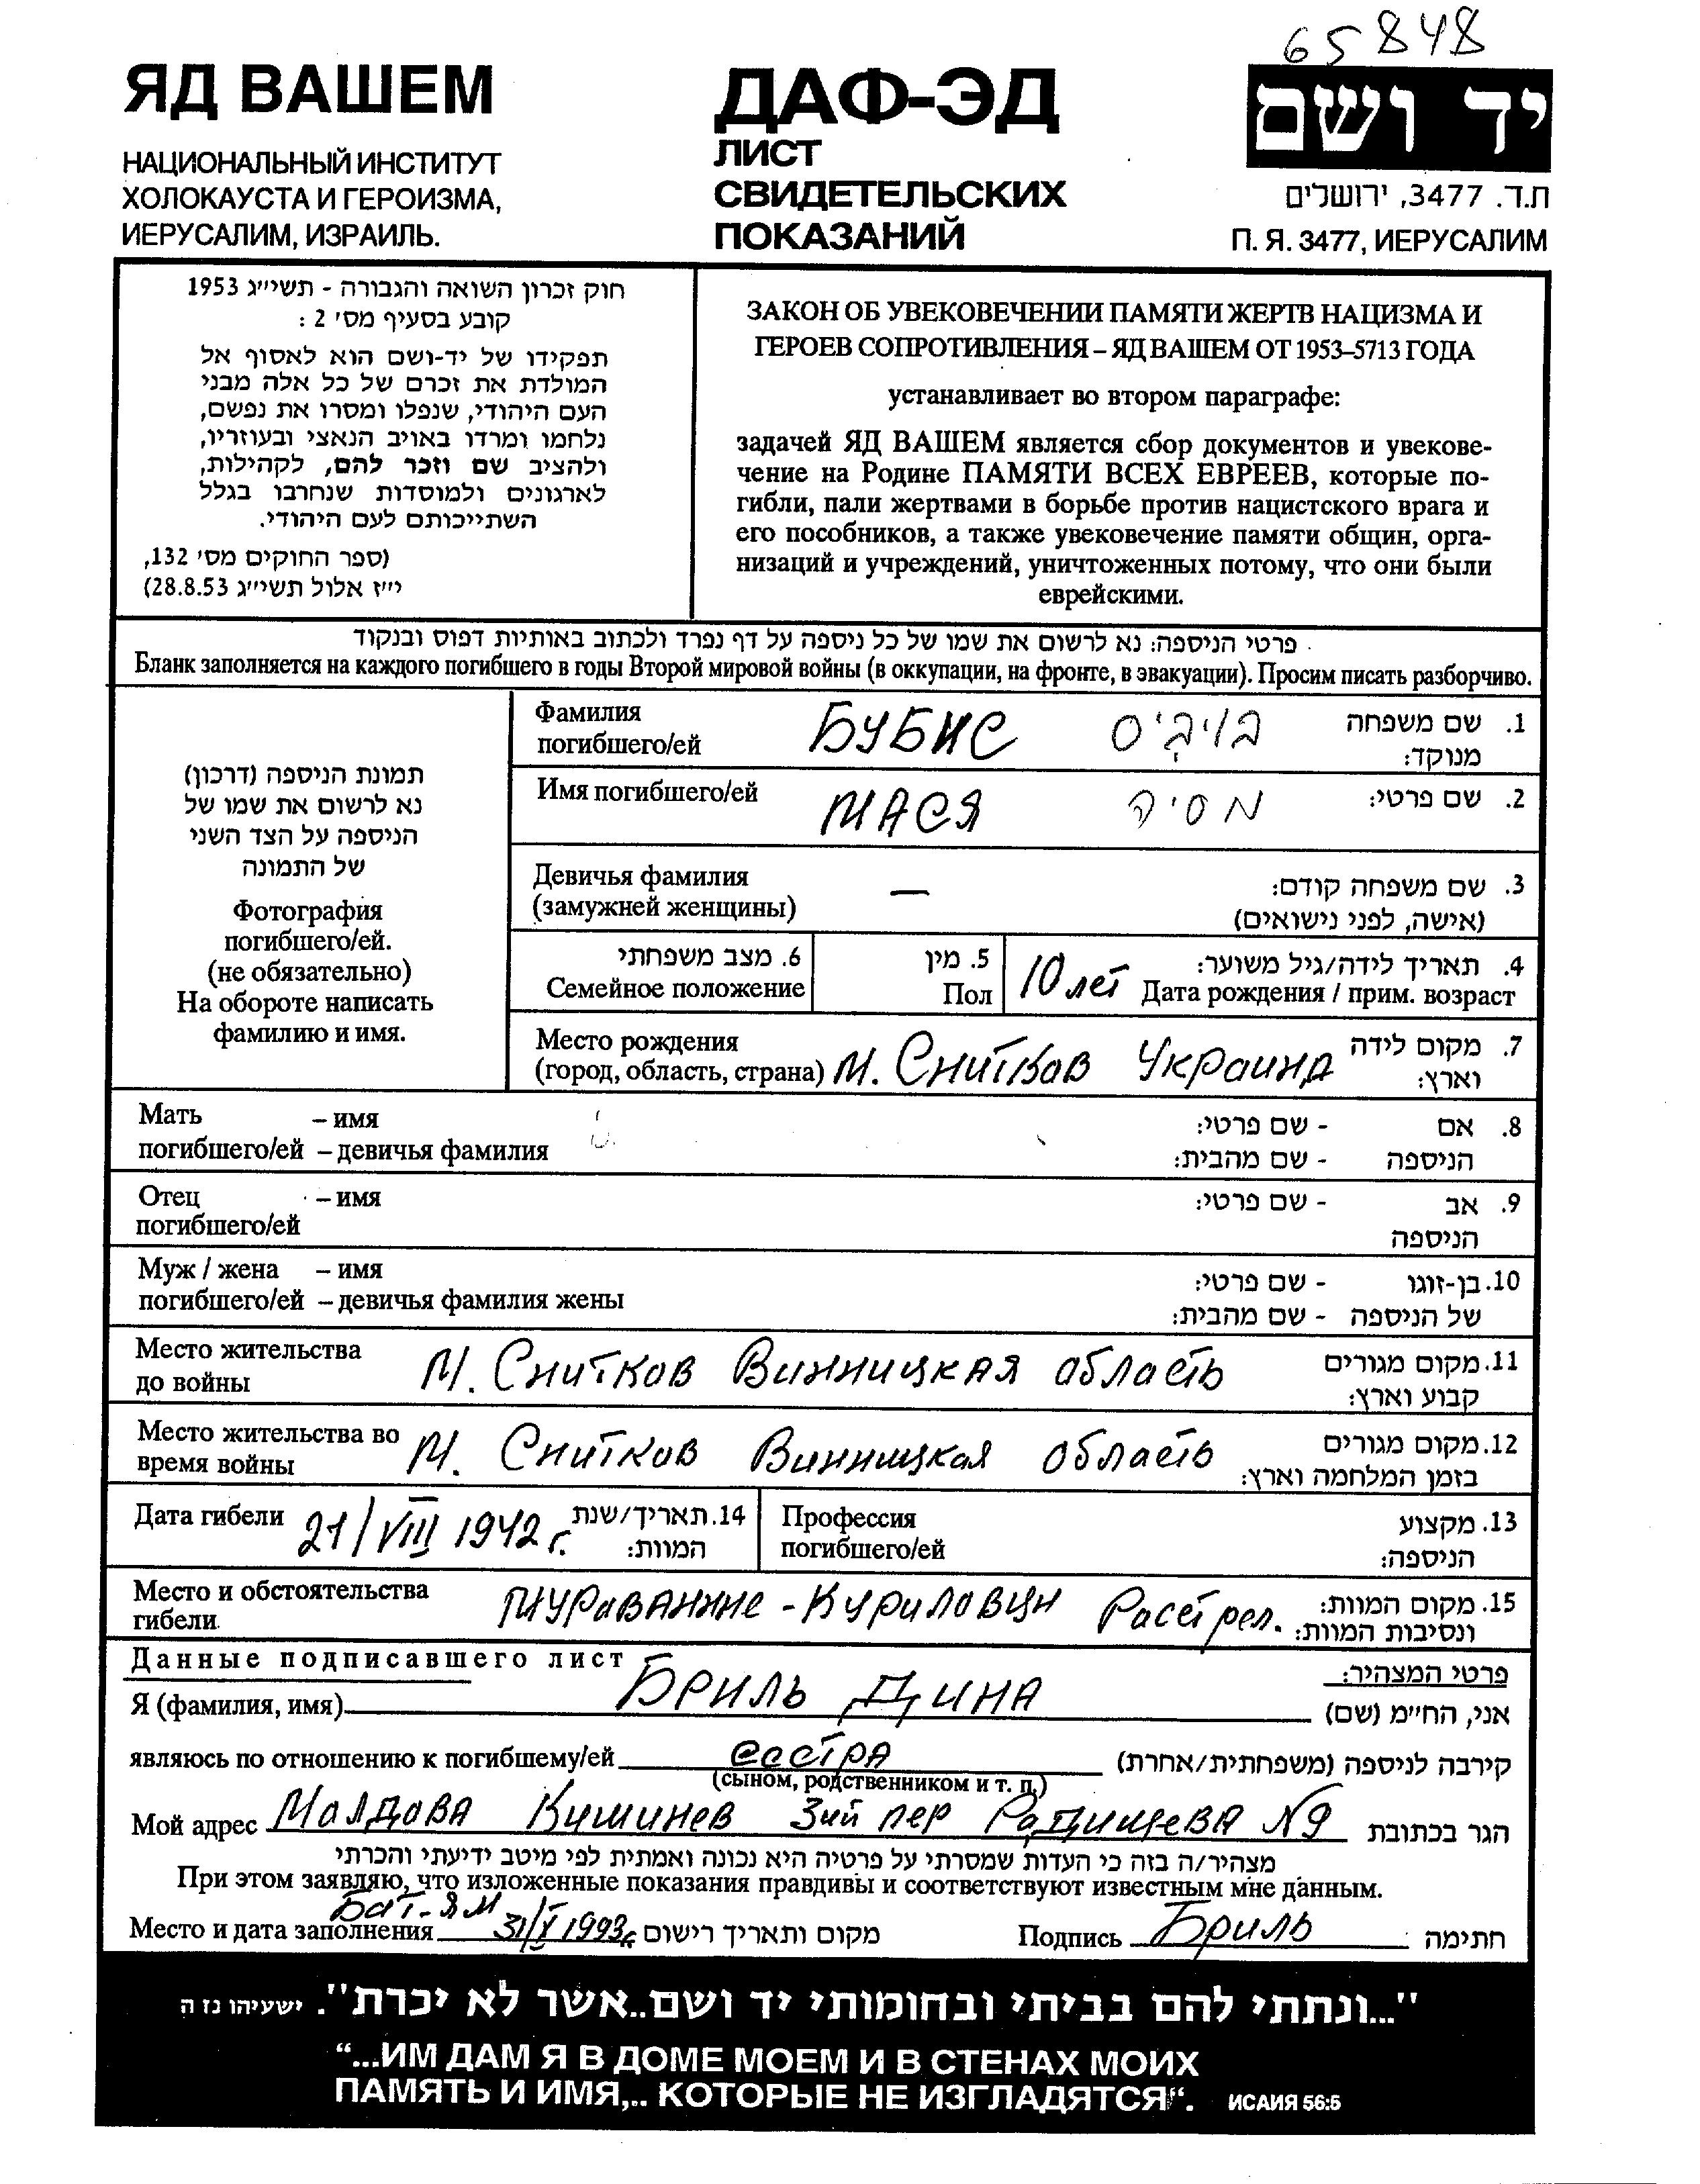 65848
ЯД ВАШЕМ
НАЦИОНАЛЬНЫЙ ИНСТИТУТ
ХОЛОКАУСТА И ГЕРОИЗМА,
ИЕРУСАЛИМ, ИЗРАИЛЬ.
ДАФ-ЭД
ЛИСТ
СВИДЕТЕЛЬСКИХ
ПОКАЗАНИЙ
יד ושם
ת.ד. 3477, ירושלים
П. Я. 3477, ИЕРУСАЛИМ
חוק זכרון השואה והגבורה - תשי״ג 1953
קובע בסעיף מס׳ 2 :
תפקידו של יד-ושם הוא לאסוף אל
המולדת את זכרם של כל אלה מבני
העם היהודי, שנפלו ומסרו את נפשם,
נלחמו ומרדו באויב הנאצי ובעוזריו,
ולהציב שם וזכר להם, לקהילות,
לארגונים ולמוסדות שנחרבו בגלל
השתייכותם לעם היהודי.
(ספר החוקים מס׳ 132,
י״ז אלול תשי״ג 28.8.53)
ЗАКОН ОБ УВЕКОВЕЧЕНИИ ПАМЯТИ ЖЕРТВ НАЦИЗМА И
ГЕРОЕВ СОПРОТИВЛЕНИЯ – ЯД ВАШЕМ ОТ 1953–5713 ГОДА
устанавливает во втором параграфе:
задачей ЯД ВАШЕМ является сбор документов и увекове-
чение на Родине ПАМЯТИ ВСЕХ ЕВРЕЕВ, которые по-
гибли, пали жертвами в борьбе против нацистского врага и
его пособников, а также увековечение памяти общин, орга-
низаций и учреждений, уничтоженных потому, что они были
еврейскими.
פרטי הניספה: נא לרשום את שמו של כל ניספה על דף נפרד ולכתוב באותיות דפוס ובנקוד
Бланк заполняется на каждого погибшего в годы Второй мировой войны (в оккупации, на фронте, в эвакуации). Просим писать разборчиво.
תמונת הניספה (דרכון)
נא לרשום את שמו של
הניספה על הצד השני
של התמונה
Фотография
погибшего/ей.
(не обязательно)
На обороте написать
фамилию и имя.
Фамилия БУБИС בויביס 1. שם משפחה
погибшего/ей מנוקד:
Имя погибшего/ей МАСЯ מסיה 2. שם פרטי:
Девичья фамилия — 3. שם משפחה קודם:
(замужней женщины) (אישה, לפני נישואים)
6. מצב משפחתי 5. מין 4. תאריך לידה/גיל משוער:
Семейное положение Пол 10 лет Дата рождения / прим. возраст
Место рождения 7. מקום לידה
(город, область, страна) М. Снитков Украина וארץ:
Мать – имя 8. אם - שם פרטי:
погибшего/ей – девичья фамилия הניספה - שם מהבית:
Отец – имя 9. אב - שם פרטי:
погибшего/ей הניספה
Муж / жена – имя 10. בן-זוגו - שם פרטי:
погибшего/ей – девичья фамилия жены של הניספה - שם מהבית:
Место жительства М. Снитков Винницкая область 11. מקום מגורים
до войны קבוע וארץ:
Место жительства во М. Снитков Винницкая область 12. מקום מגורים
время войны בזמן המלחמה וארץ:
Дата гибели 21/VIII 1942 г. 14. תאריך/שנת Профессия 13. מקצוע
המוות: погибшего/ей הניספה:
Место и обстоятельства МУРАВАННЫЕ-КУРИЛОВЦЫ Растрел. 15. מקום המוות:
гибели ונסיבות המוות:
Данные подписавшего лист פרטי המצהיר:
Я (фамилия, имя) БРИЛЬ ДИНА אני, הח״מ (שם)
являюсь по отношению к погибшему/ей сестра קירבה לניספה (משפחתית/אחרת)
(сыном, родственником и т. п.)
Мой адрес Малдова Кишинев 3ий пер Радищева N9 הגר בכתובת
מצהיר/ה בזה כי העדות שמסרתי על פרטיה היא נכונה ואמתית לפי מיטב ידיעתי והכרתי
При этом заявляю, что изложенные показания правдивы и соответствуют известным мне данным.
Бат-Ям
Место и дата заполнения 31/X 1993г מקום ותאריך רישום Подпись Бриль חתימה
"...ונתתי להם בביתי ובחומותי יד ושם..אשר לא יכרת". ישעיהו נז ה
“...ИМ ДАМ Я В ДОМЕ МОЕМ И В СТЕНАХ МОИХ
ПАМЯТЬ И ИМЯ,.. КОТОРЫЕ НЕ ИЗГЛАДЯТСЯ“. ИСАИЯ 56:5